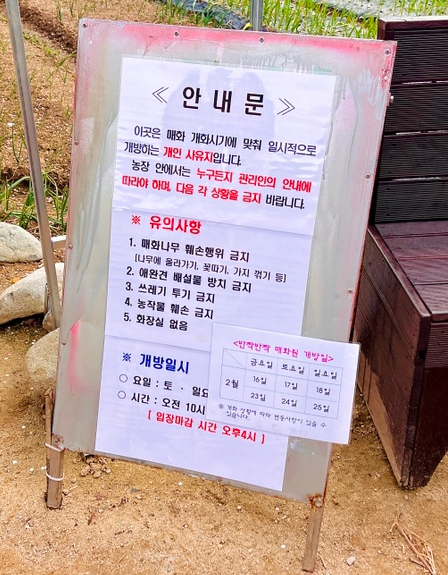 ≪ 안내문 ≫
이곳은 매화 개화시기에 맞춰 일시적으로
개방하는 개인 사유지입니다.
농장 안에서는 누구든지 관리인의 안내에
따라야 하며, 다음 각 상황을 금지 바랍니다.
※ 유의사항
1. 매화나무 훼손행위 금지
(나무에 올라가기, 꽃따기, 가지 꺾기 등)
2. 애완견 배설물 방치 금지
3. 쓰레기 투기 금지
4. 농작물 훼손 금지
5. 화장실 없음
※ 개방일시
○ 요일 : 토 · 일요
○ 시간 : 오전 10시
[ 입장마감 시간 오후4시 ]
<반짝반짝 매화원 개방일>
금요일 토요일 일요일
2월 16일 17일 18일
23일 24일 25일
※ 개화 상황에 따라 변동사항이 있을 수
있습니다.